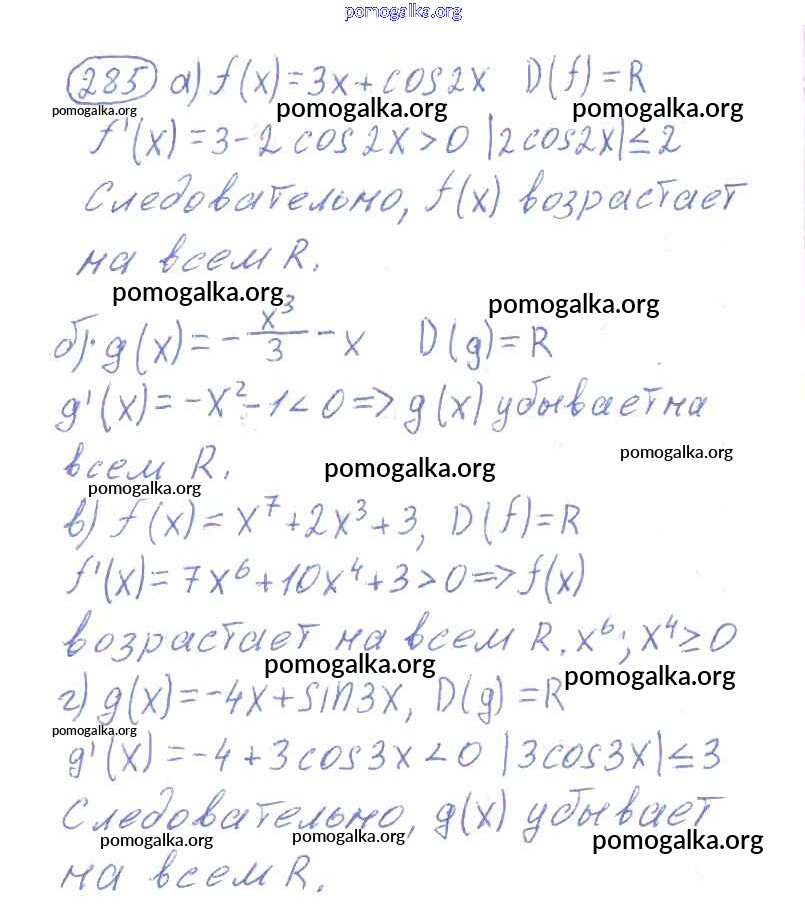 pomogalka.org
285 а) f(x)=3x+cos2x D(f)=R
pomogalka.org pomogalka.org pomogalka.org
f'(x)=3-2cos2x>0 |2cos2x|≤2
Следовательно, f(x) возрастает
на всем R.
pomogalka.org pomogalka.org
б) g(x)=-x³/3-x D(g)=R
g'(x)=-x²-1<0=>g(x) убывает на
pomogalka.org
всем R. pomogalka.org
pomogalka.org
в) f(x)=x⁷+2x³+3, D(f)=R
f'(x)=7x⁶+10x⁴+3>0=>f(x)
возрастает на всем R. x⁶; x⁴≥0
pomogalka.org pomogalka.org
г) g(x)=-4x+sin3x, D(g)=R
pomogalka.org
g'(x)=-4+3cos3x<0 |3cos3x|≤3
Следовательно, g(x) убывает
pomogalka.org pomogalka.org pomogalka.org
на всем R.